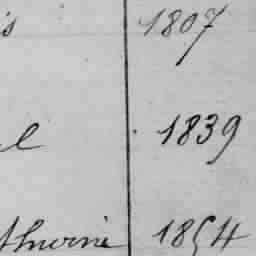 is 1807
el 1839
thurine 1854